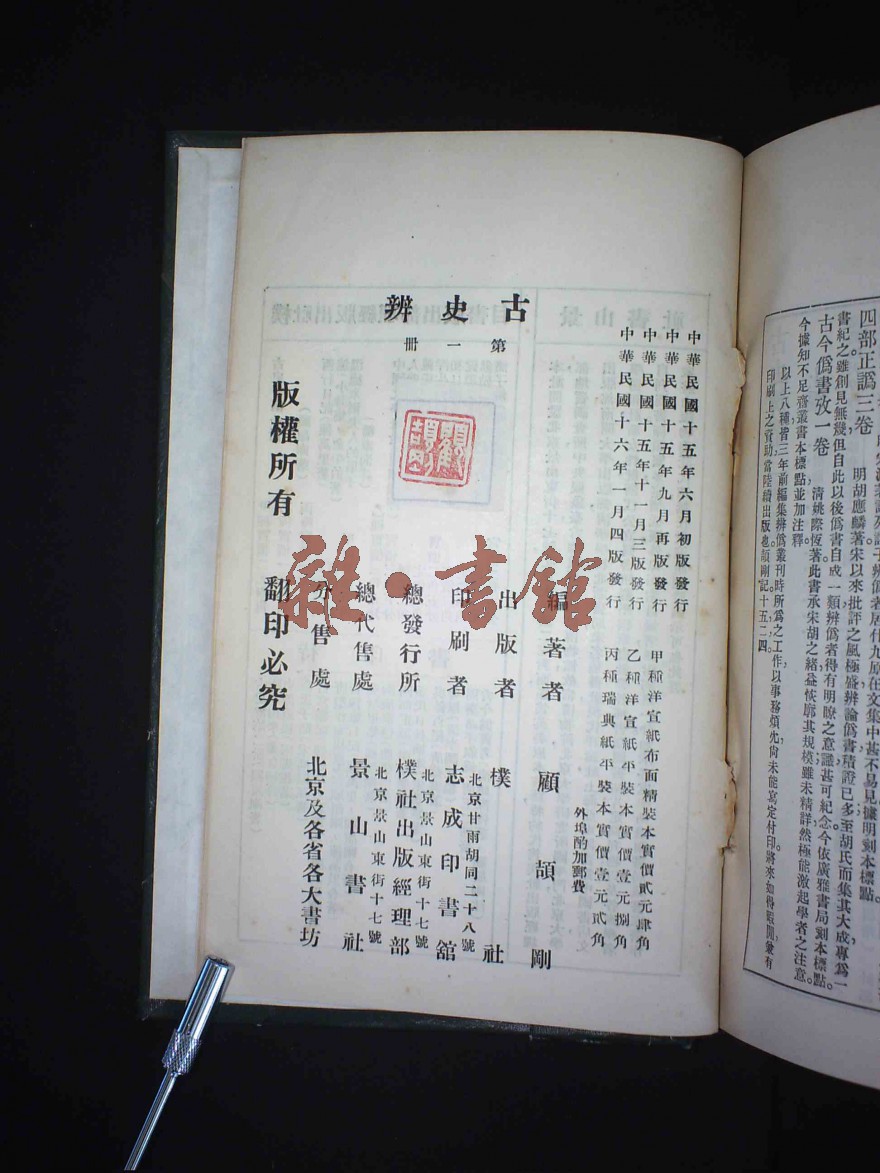 辨僞者居什九原在文集中甚不易見據明刻本標點。
四部正譌三卷　明胡應麟著宋以來批評之風極盛辨論僞書積證已多至胡氏而集其大成專爲一
書紀之雖創見無幾但自此以後僞書自成一類辨僞者得有明瞭之意識甚可紀念今依廣雅書局刻本標點。
古今僞書攷一卷　清姚際恆著此書承宋胡之緒益恢廓其規模雖未精詳然極能激起學者之注意。
今據知不足齋叢書本標點並加注釋。
以上八種皆三年前編集辨僞叢刊時所爲之工作以事務煩先尙未能寫定付印將來如得暇閒彙有
印刷上之資助當陸續出版也頡剛記十五二四。
古史辨
第一冊
中華民國十五年六月初版發行
中華民國十五年九月再版發行
中華民國十五年十一月三版發行
中華民國十六年一月四版發行
甲種洋宣紙布面精裝本實價貳元肆角
乙種洋宣紙平裝本實價壹元捌角
丙種瑞典紙平裝本實價壹元貳角
外埠酌加郵費
編著者　顧頡剛
出版者　樸社
北京甘雨胡同二十八號
印刷者　志成印書館
北京景山東街十七號
總發行所　樸社出版經理部
北京景山東街十七號
總代售處　景山書社
分售處　北京及各省各大書坊
版權所有　翻印必究
雜·書館